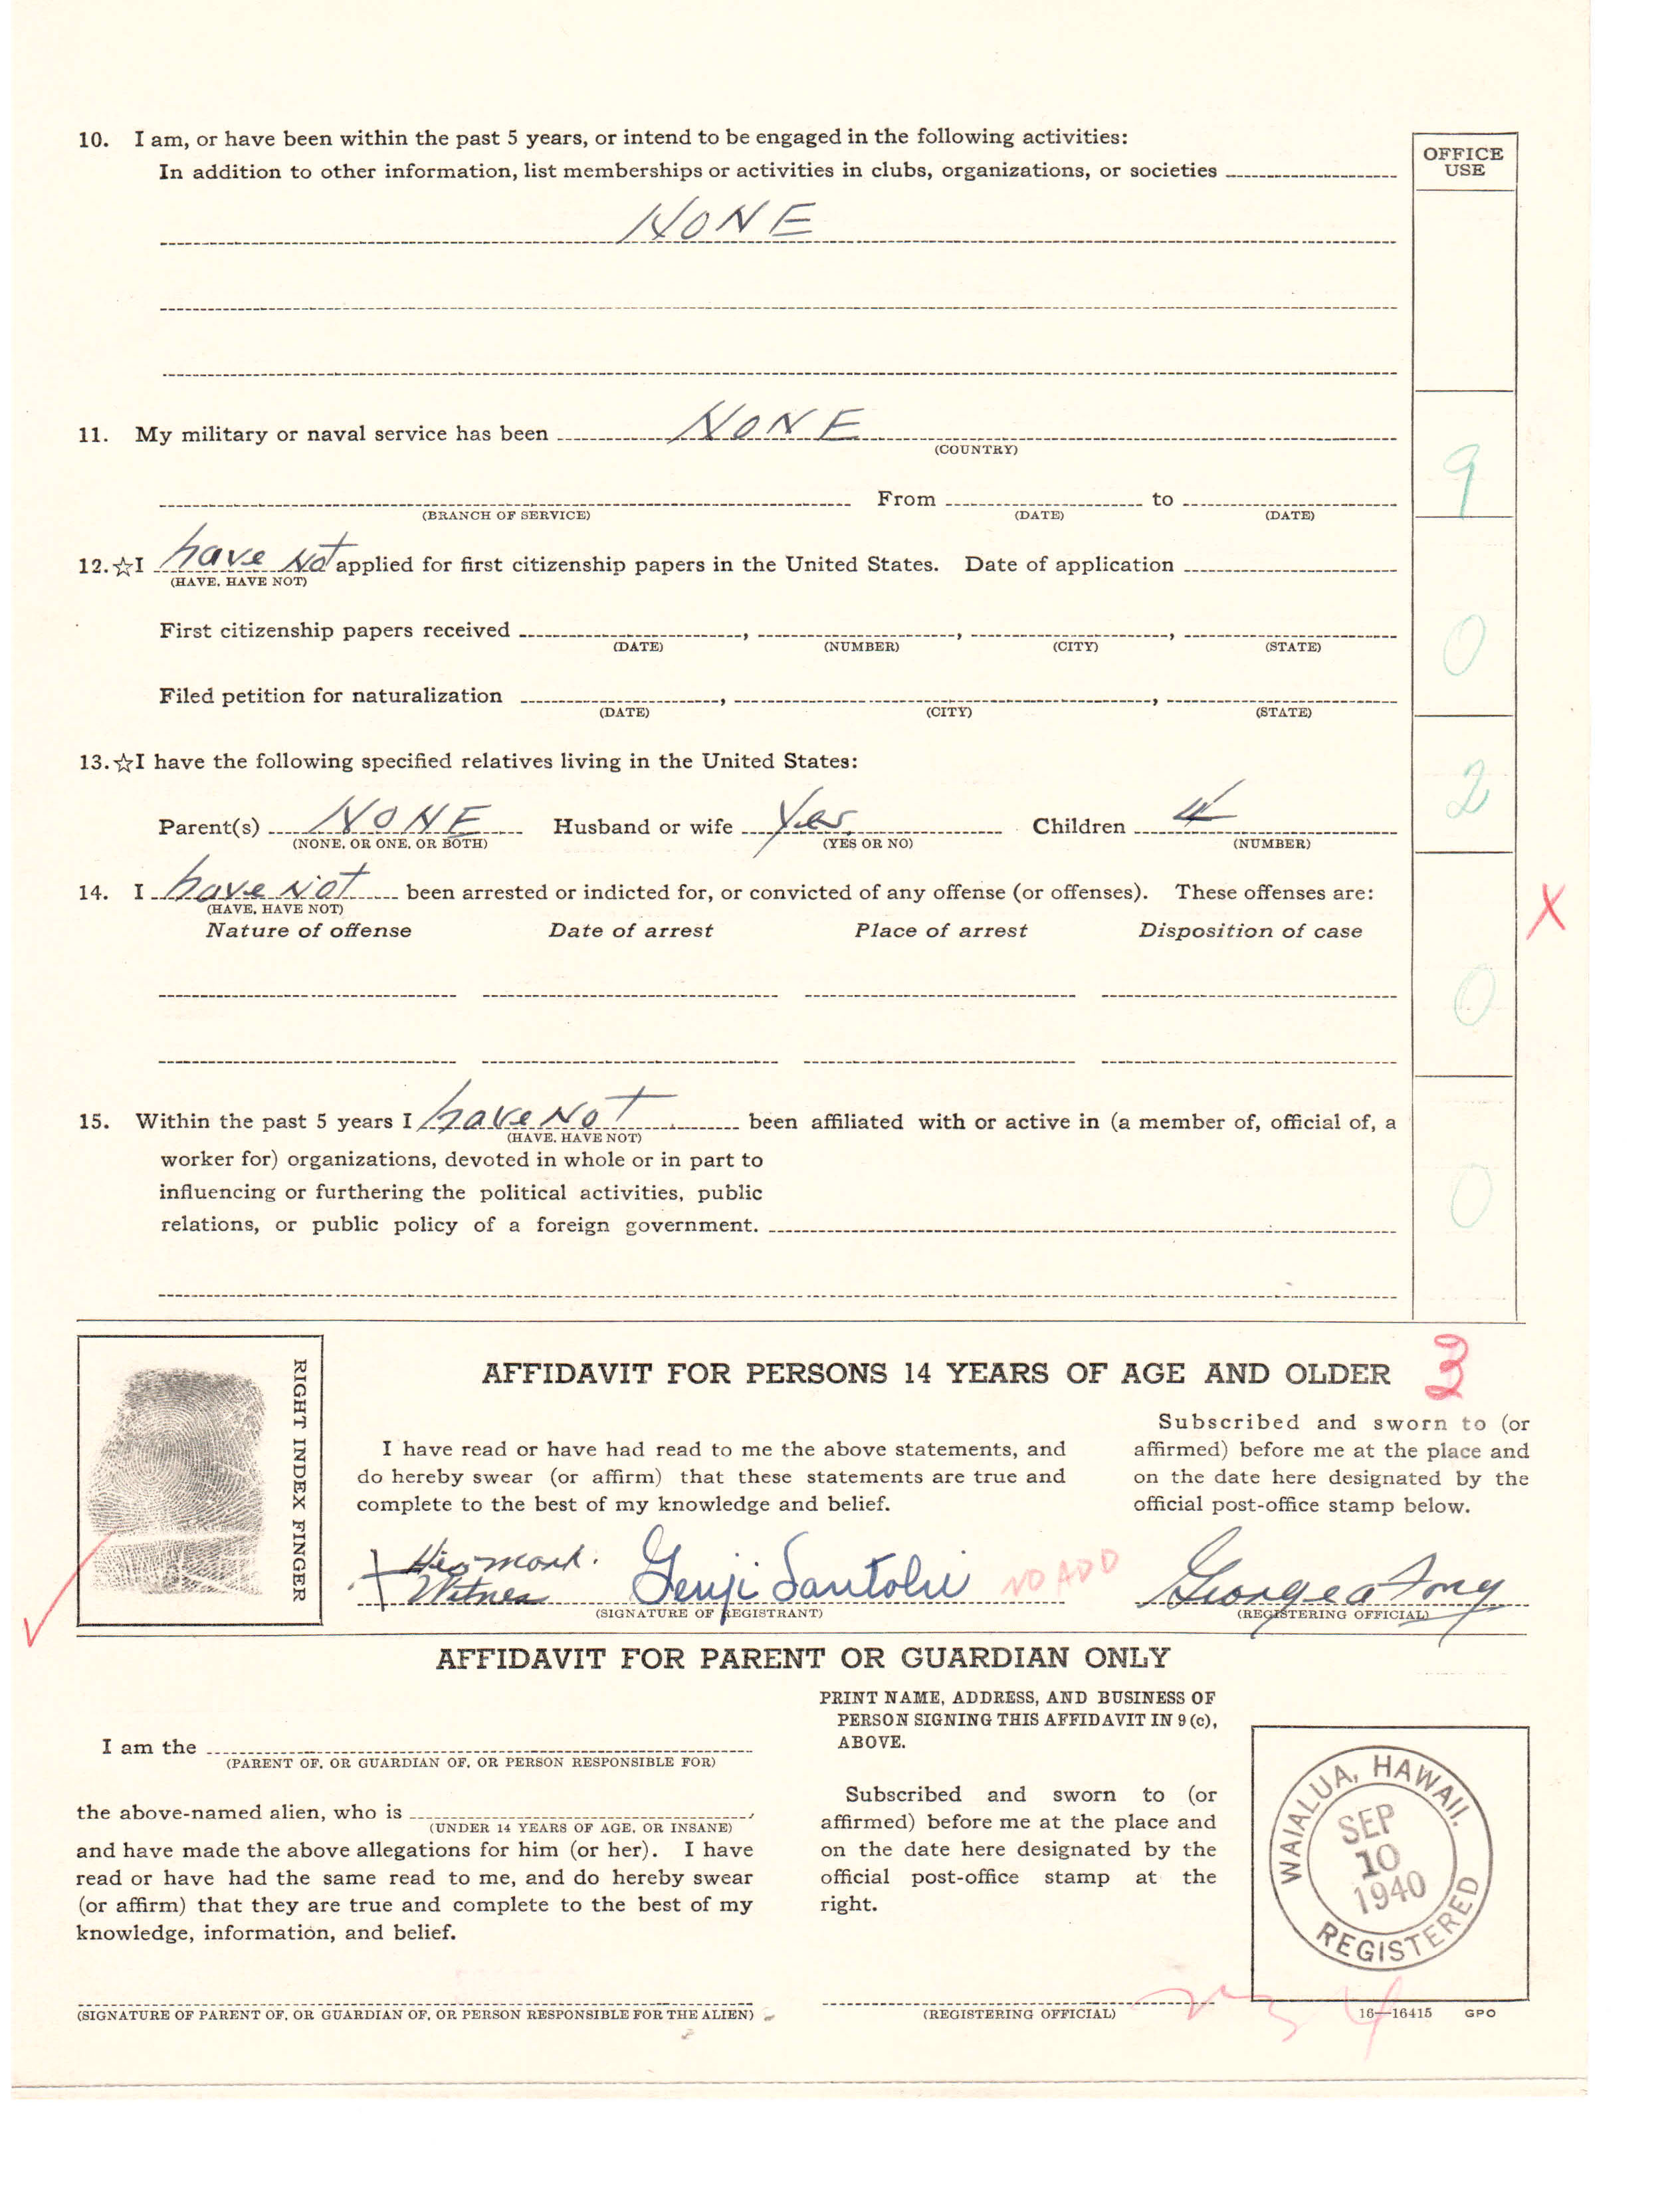 10. I am, or have been within the past 5 years, or intend to be engaged in the following activities:
In addition to other information, list memberships or activities in clubs, organizations, or societies
OFFICE
USE
NONE
11. My military or naval service has been NONE
(COUNTRY)
9
From to
(BRANCH OF SERVICE) (DATE) (DATE)
12. ☆I have Not applied for first citizenship papers in the United States. Date of application
(HAVE, HAVE NOT)
First citizenship papers received , , ,
(DATE) (NUMBER) (CITY) (STATE)
0
Filed petition for naturalization , ,
(DATE) (CITY) (STATE)
13. ☆I have the following specified relatives living in the United States:
2
Parent(s) NONE Husband or wife Yes Children 4
(NONE, OR ONE, OR BOTH) (YES OR NO) (NUMBER)
14. I have Not been arrested or indicted for, or convicted of any offense (or offenses). These offenses are:
(HAVE, HAVE NOT)
X
Nature of offense Date of arrest Place of arrest Disposition of case
0
15. Within the past 5 years I have Not been affiliated with or active in (a member of, official of, a
(HAVE, HAVE NOT)
worker for) organizations, devoted in whole or in part to
influencing or furthering the political activities, public
relations, or public policy of a foreign government.
0
RIGHT INDEX FINGER
AFFIDAVIT FOR PERSONS 14 YEARS OF AGE AND OLDER 3
I have read or have had read to me the above statements, and
do hereby swear (or affirm) that these statements are true and
complete to the best of my knowledge and belief.
Subscribed and sworn to (or
affirmed) before me at the place and
on the date here designated by the
official post-office stamp below.
His mark.
Witness Genji NO ADD George a
(SIGNATURE OF REGISTRANT) (REGISTERING OFFICIAL)
AFFIDAVIT FOR PARENT OR GUARDIAN ONLY
I am the
(PARENT OF, OR GUARDIAN OF, OR PERSON RESPONSIBLE FOR)
the above-named alien, who is
(UNDER 14 YEARS OF AGE, OR INSANE)
and have made the above allegations for him (or her). I have
read or have had the same read to me, and do hereby swear
(or affirm) that they are true and complete to the best of my
knowledge, information, and belief.
(SIGNATURE OF PARENT OF, OR GUARDIAN OF, OR PERSON RESPONSIBLE FOR THE ALIEN)
PRINT NAME, ADDRESS, AND BUSINESS OF
PERSON SIGNING THIS AFFIDAVIT IN 9 (c),
ABOVE.
Subscribed and sworn to (or
affirmed) before me at the place and
on the date here designated by the
official post-office stamp at the
right.
(REGISTERING OFFICIAL)
WAIALUA, HAWAII.
SEP
10
1940
REGISTERED
16—16415 GPO